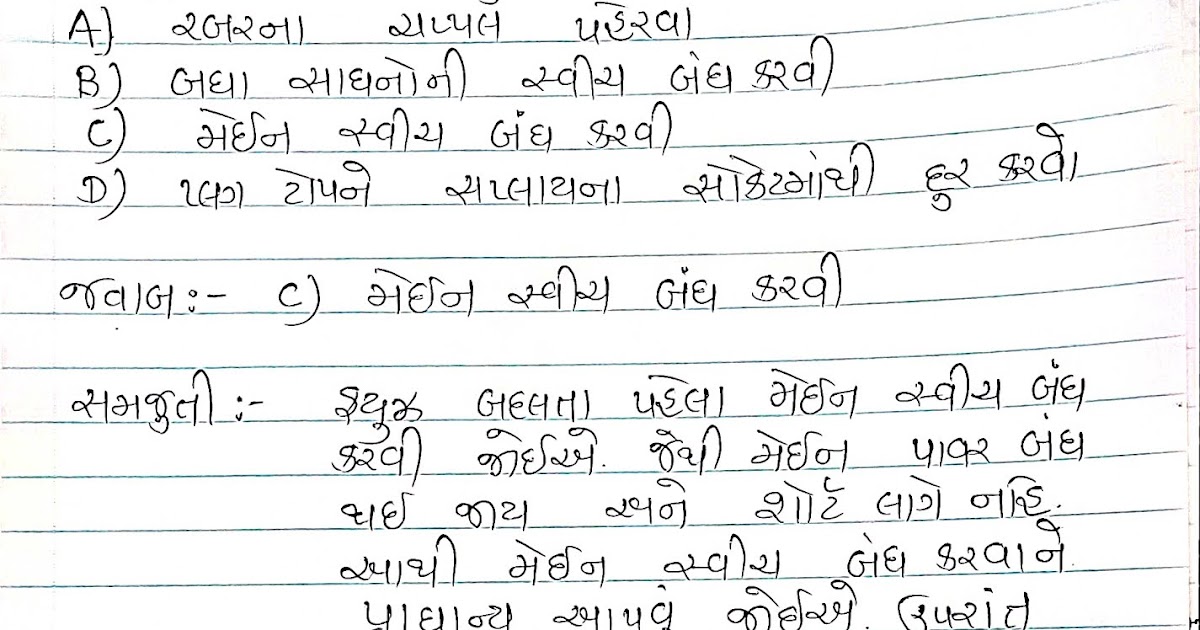 A) રબરના ચપ્પલ પહેરવા
B) બધા સાધનોની સ્વીચ બંધ કરવી
C) મેઈન સ્વીચ બંધ કરવી
D) પ્લગ ટોપને સપ્લાયના સોકેટમાંથી દુર કરવો
જવાબ:- C) મેઈન સ્વીચ બંધ કરવી
સમજુતી:- ફ્યુઝ બદલતા પહેલા મેઈન સ્વીચ બંધ
કરવી જોઈએ. જેથી મેઈન પાવર બંધ
થઈ જાય અને શોર્ટ લાગે નહિ.
આથી મેઈન સ્વીચ બંધ કરવાને
પ્રાધાન્ય આપવું જોઈએ. ઉપરાંત